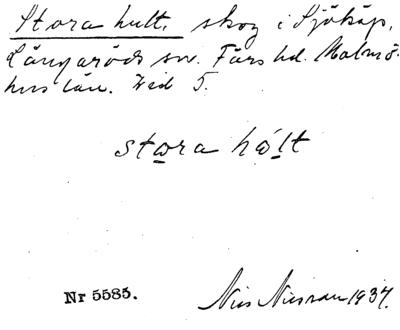 Stora hult, skog i Sjökap,
Långaröds sn. Färs hd. Malmö-
hus län. Ked 5.
stara hålt
Nr 5585.
Nils Nilsson 1937.